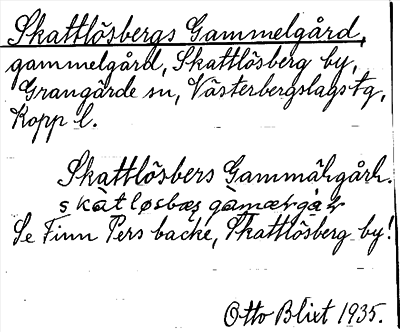 Skattlösbergs Gammelgård,
gammelgård, Skattlösberg by,
Grangärde sn, Västerbergslags tg,
Kopp l.
Skattlösbers
Se Finn Pers backe, Skattlösberg by!
Otto Blixt 1935.